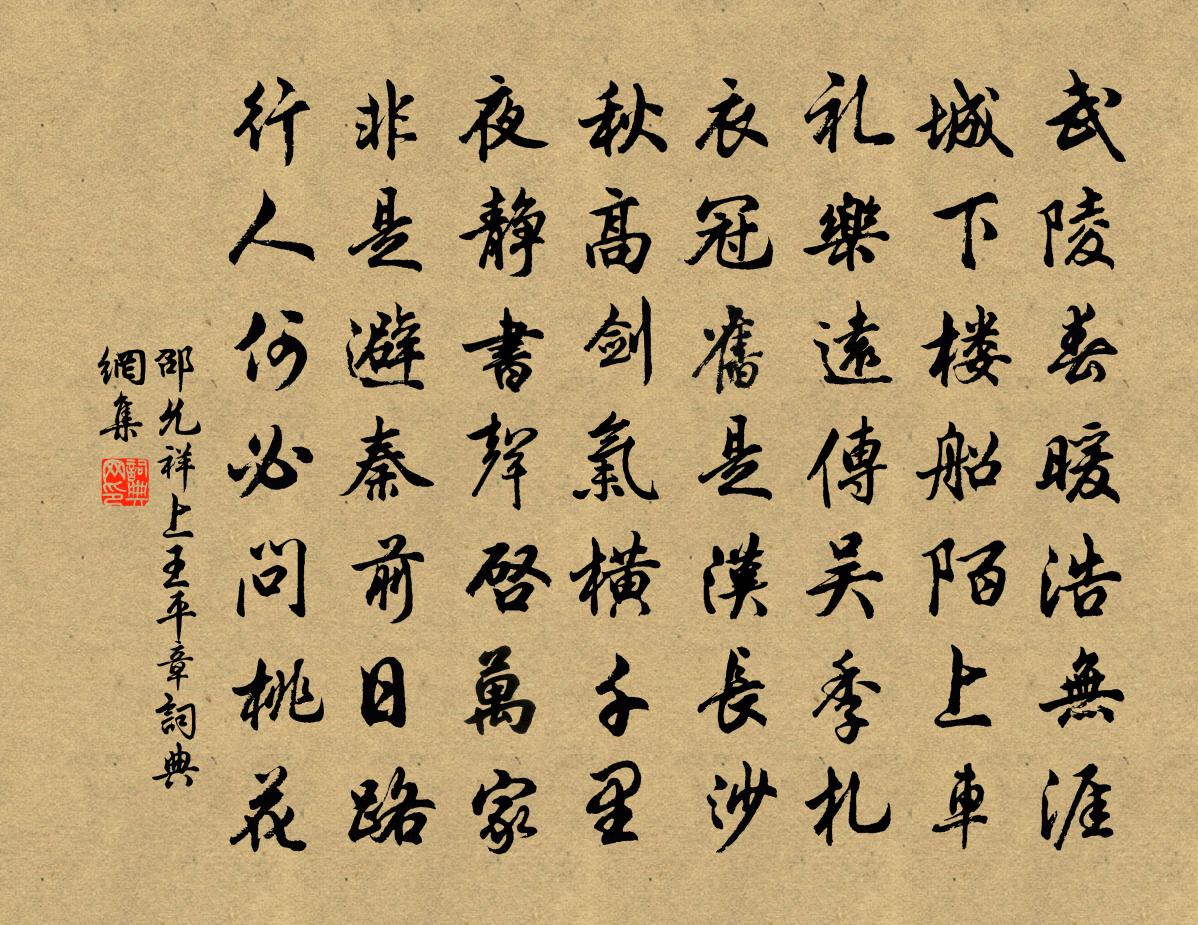 武陵春暖浩無涯
城下楼船陌上車
礼樂遠傳吴季札
衣冠舊是漢長沙
秋高剑氣横千里
夜静書聲啓萬家
非是避秦前日路
行人何必問桃花
邵允祥上王平章詞典
網集
詞典
网印